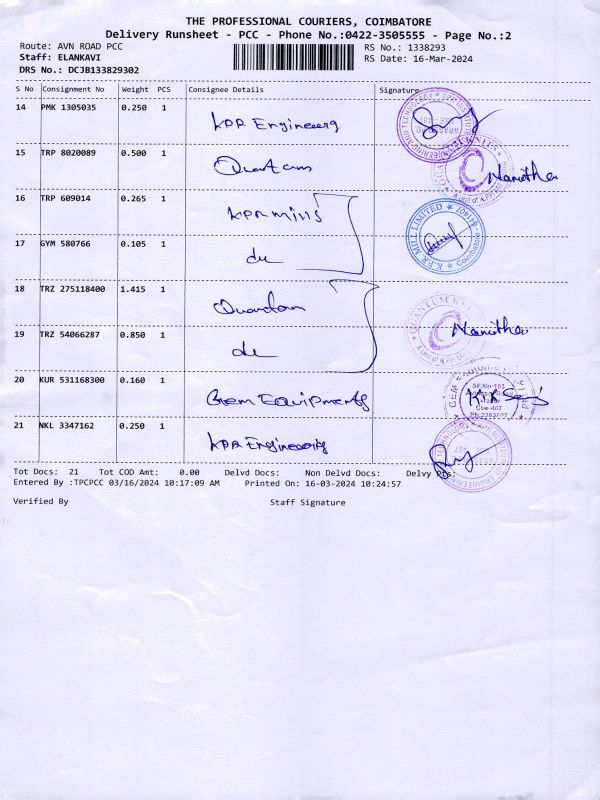 THE PROFESSIONAL COURIERS, COIMBATORE
Delivery Runsheet - PCC - Phone No.:0422-3505555 - Page No.:2
Route: AVN ROAD PCC
RS No.: 1338293
Staff: ELANKAVI
RS Date: 16-Mar-2024
DRS No.: DCJB133829302
S No Consignment No Weight PCS Consignee Details Signature
14 PMK 1305035 0.250 1 KPR Engineering
15 TRP 8020089 0.500 1 Quantum Nanitha
16 TRP 609014 0.265 1 KPR mills
17 GYM 580766 0.105 1 du
K.P.R MILL LIMITED
Coimbatore
18 TRZ 275118400 1.415 1 Quantum
QUANTUM KNITS
19 TRZ 54066287 0.850 1 du Nanitha
20 KUR 531168300 0.160 1 Gem Equipments
21 NKL 3347162 0.250 1 KPR Engineering
Tot Docs: 21 Tot COD Amt: 0.00 Delvd Docs: Non Delvd Docs: Delvy Pts:
Entered By :TPCPCC 03/16/2024 10:17:09 AM Printed On: 16-03-2024 10:24:57
Verified By Staff Signature